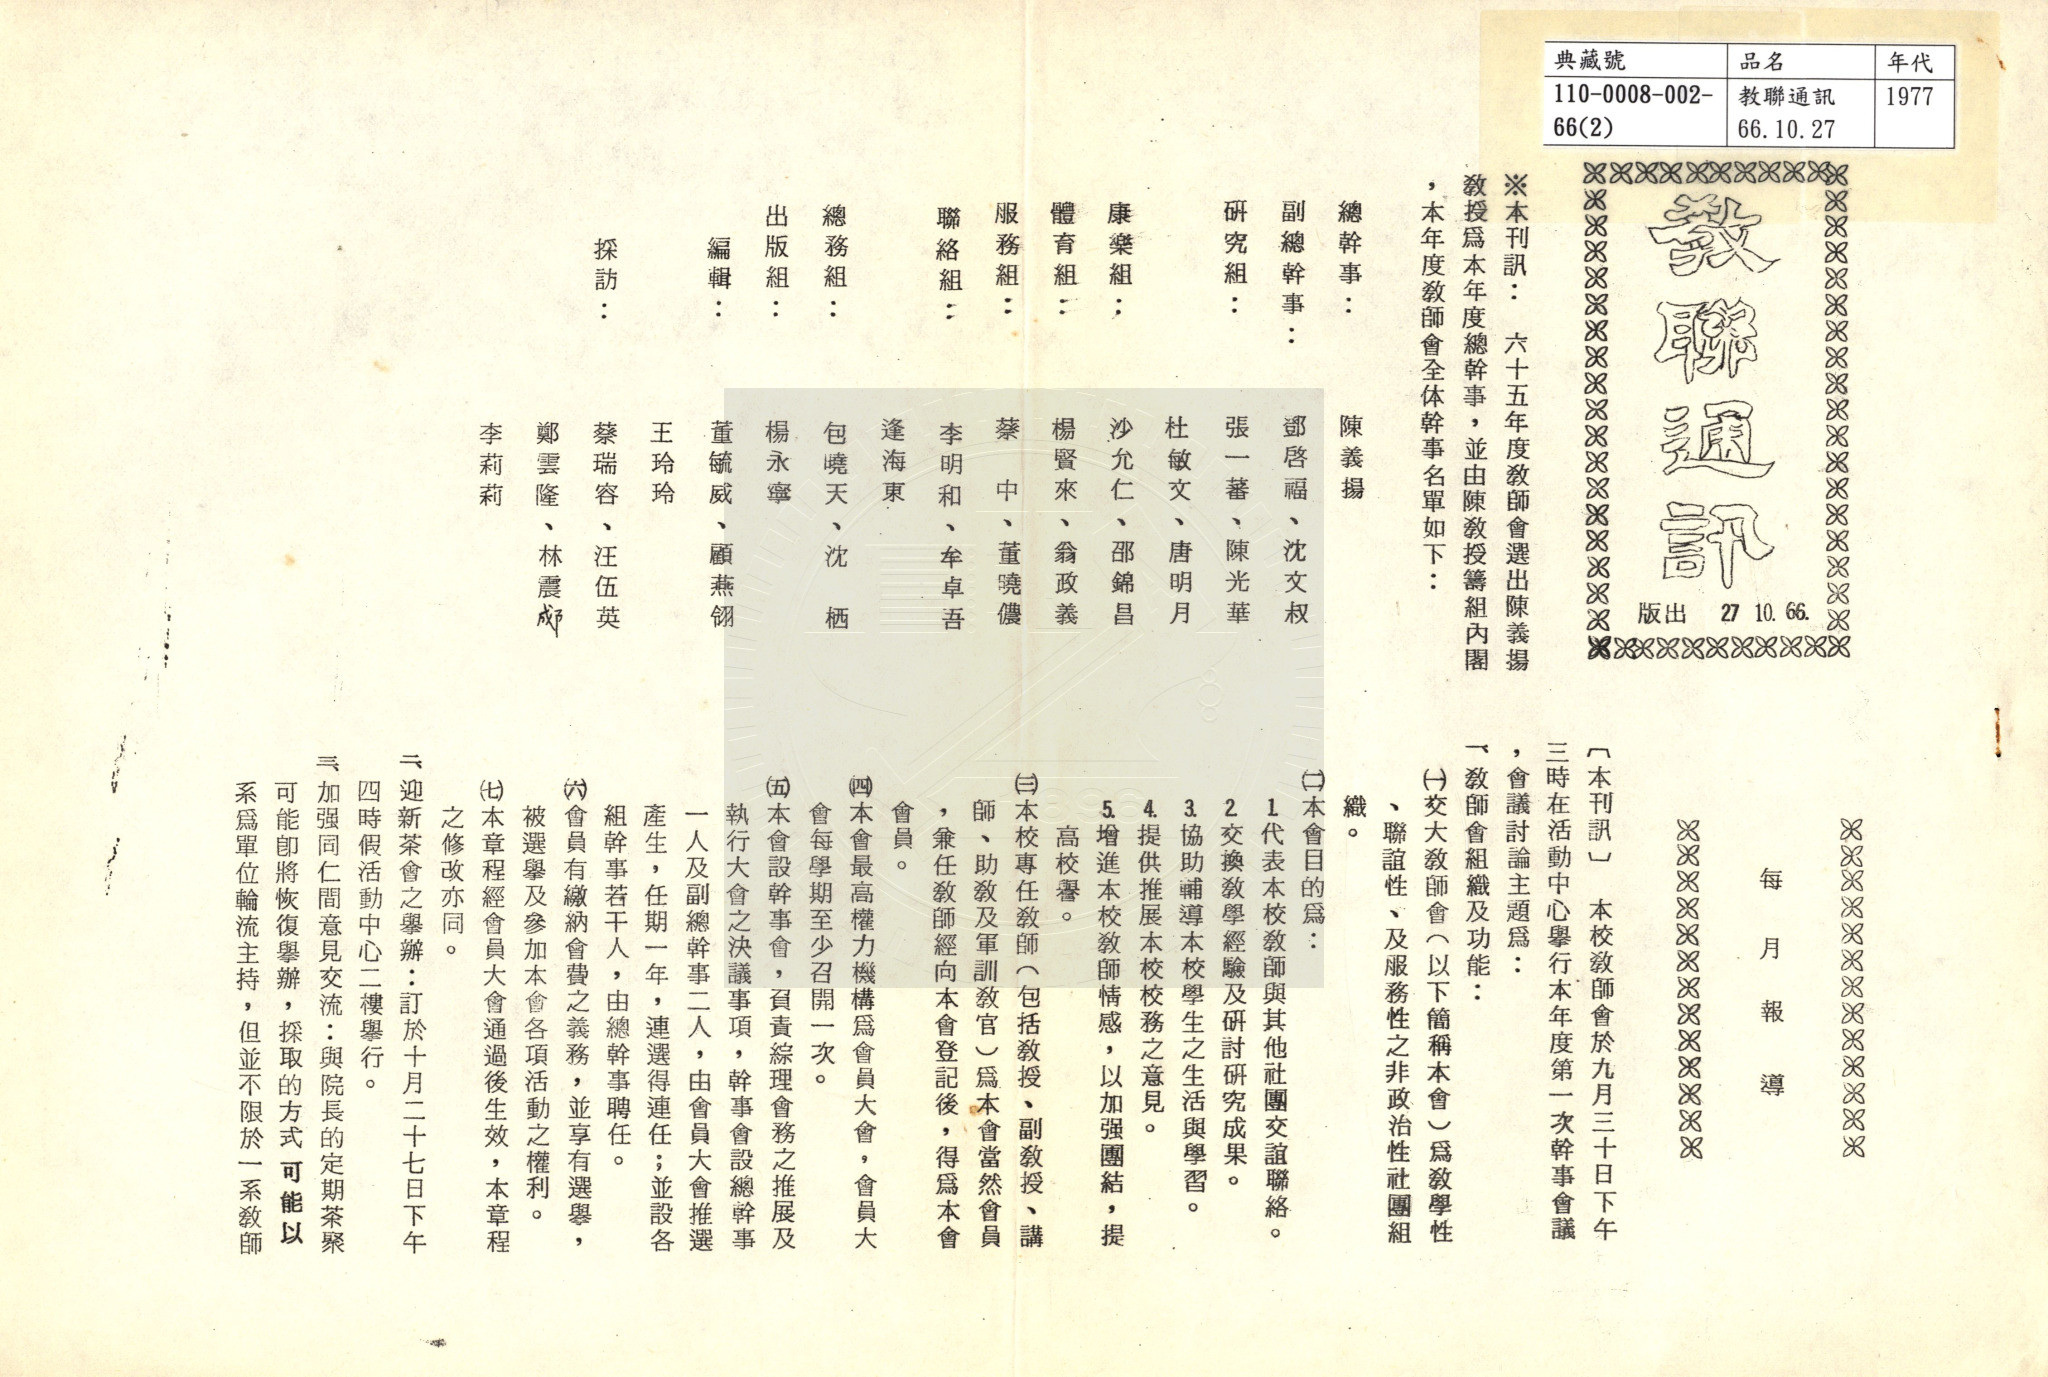 典藏號
品名
年代
110-0008-002-66(2)
教聯通訊
66.10.27
1977
教聯通訊
66. 10. 27 出版
※本刊訊： 六十五年度教師會選出陳義揚
教授爲本年度總幹事，並由陳教授籌組內閣
，本年度教師會全体幹事名單如下：
總幹事： 陳義揚
副總幹事： 鄧啓福、沈文叔
研究組： 張一蕃、陳光華
杜敏文、唐明月
康樂組： 沙允仁、邵錦昌
體育組： 楊賢來、翁政義
服務組： 蔡 中、董曉儂
聯絡組： 李明和、牟卓吾
逢海東
總務組： 包曉天、沈 栖
出版組： 楊永寧
編輯： 董毓威、顧燕翎
王玲玲
採訪： 蔡瑞容、汪伍英
鄭雲隆、林震成
李莉莉
每月報導
〔本刊訊〕 本校教師會於九月三十日下午
三時在活動中心舉行本年度第一次幹事會議
，會議討論主題爲：
一、教師會組織及功能：
㈠交大教師會（以下簡稱本會）爲教學性
、聯誼性、及服務性之非政治性社團組
織。
㈡本會目的爲：
1.代表本校教師與其他社團交誼聯絡。
2.交換教學經驗及研討研究成果。
3.協助輔導本校學生之生活與學習。
4.提供推展本校校務之意見。
5.增進本校教師情感，以加强團結，提
高校譽。
㈢本校專任教師（包括教授、副教授、講
師、助教及軍訓教官）爲本會當然會員
，兼任教師經向本會登記後，得爲本會
會員。
㈣本會最高權力機構爲會員大會，會員大
會每學期至少召開一次。
㈤本會設幹事會，負責綜理會務之推展及
執行大會之決議事項，幹事會設總幹事
一人及副總幹事二人，由會員大會推選
產生，任期一年，連選得連任；並設各
組幹事若干人，由總幹事聘任。
㈥會員有繳納會費之義務，並享有選舉，
被選舉及參加本會各項活動之權利。
㈦本章程經會員大會通過後生效，本章程
之修改亦同。
二、迎新茶會之舉辦：訂於十月二十七日下午
四時假活動中心二樓舉行。
三、加强同仁間意見交流：與院長的定期茶聚
可能卽將恢復舉辦，採取的方式可能以
系爲單位輪流主持，但並不限於一系教師